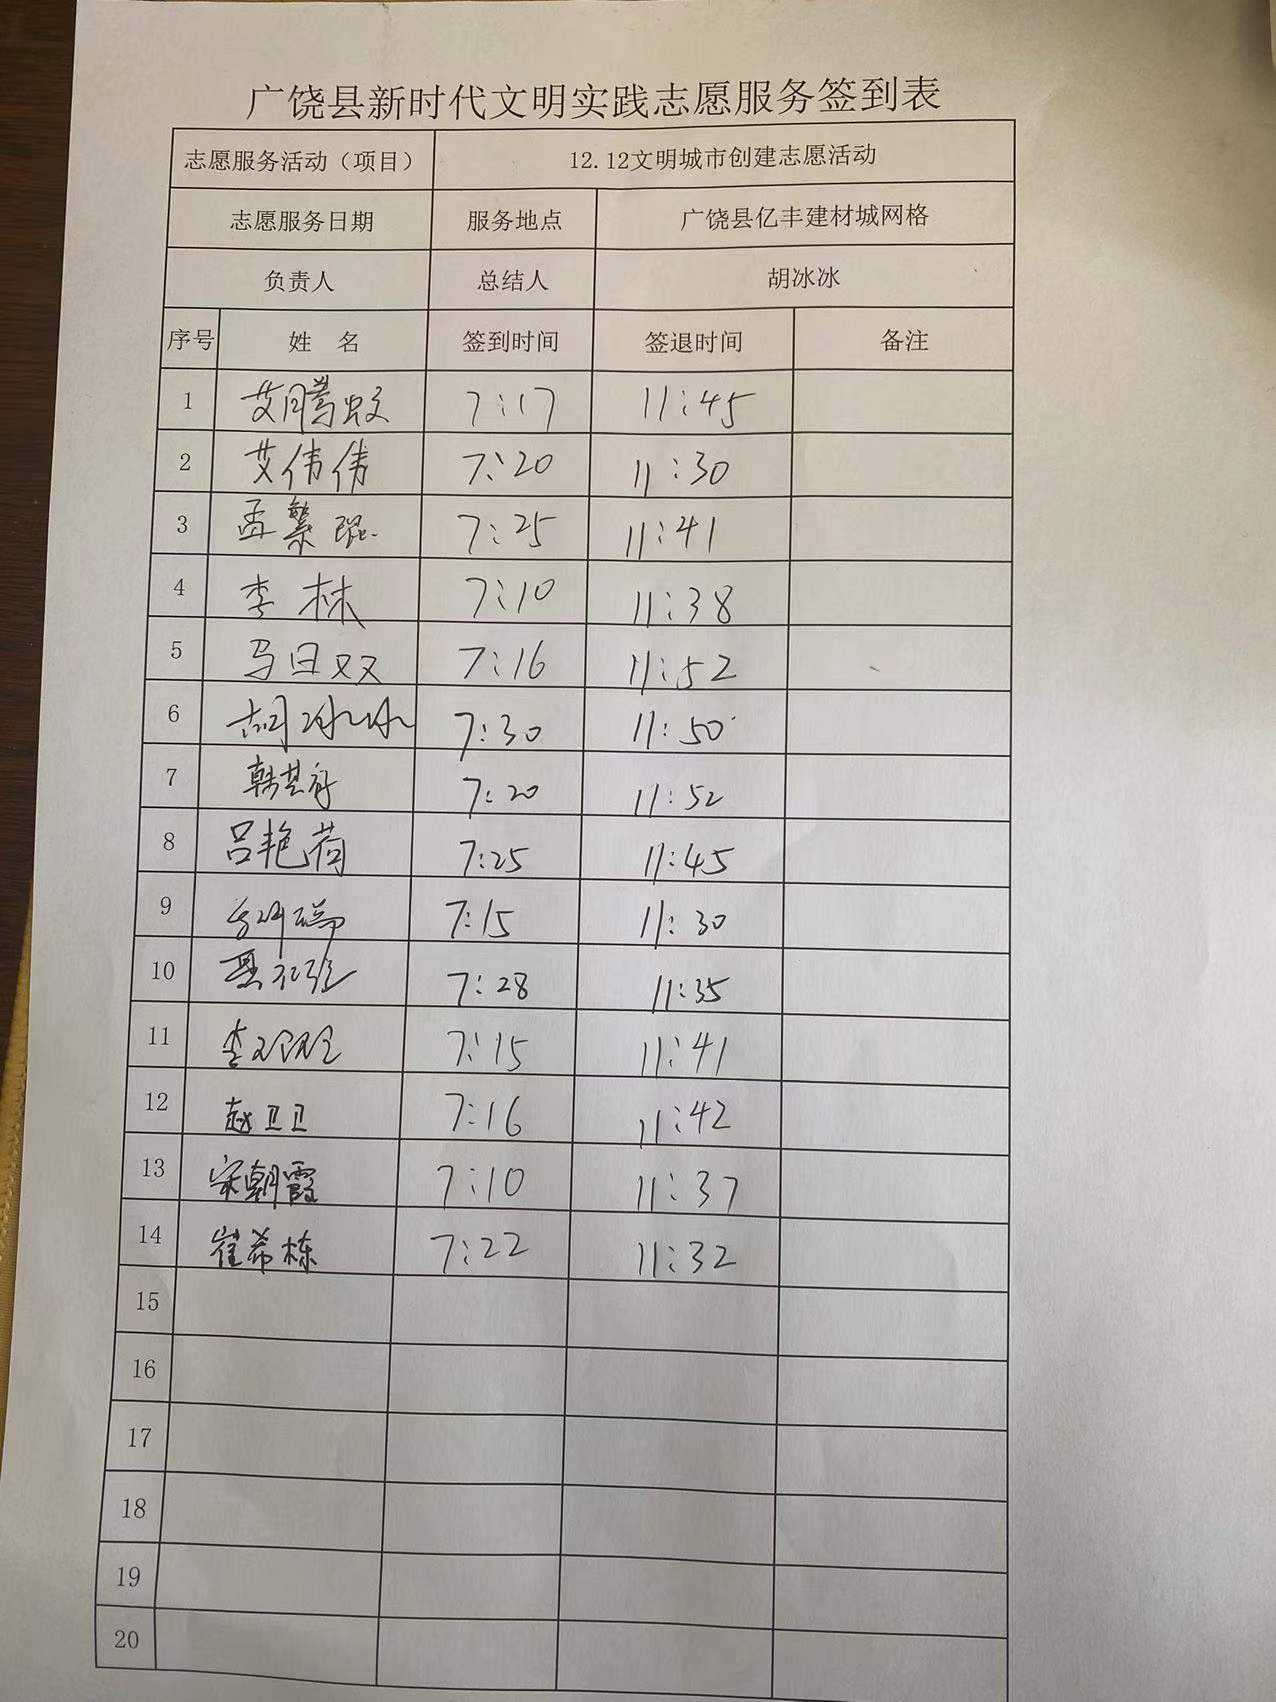 广饶县新时代文明实践志愿服务签到表
志愿服务活动（项目） 12.12文明城市创建志愿活动
志愿服务日期 服务地点 广饶县亿丰建材城网格
负责人 总结人 胡冰冰
序号 姓 名 签到时间 签退时间 备注
1 艾腾蛟 7:17 11:45
2 艾伟伟 7:20 11:30
3 孟繁琨 7:25 11:41
4 李林 7:10 11:38
5 马曰双 7:16 11:52
6 胡冰冰 7:30 11:50
7 韩其 7:20 11:52
8 吕艳荷 7:25 11:45
9 7:15 11:30
10 聂 7:28 11:35
11 李 7:15 11:41
12 赵卫卫 7:16 11:42
13 宋朝霞 7:10 11:37
14 崔希栋 7:22 11:32
15
16
17
18
19
20